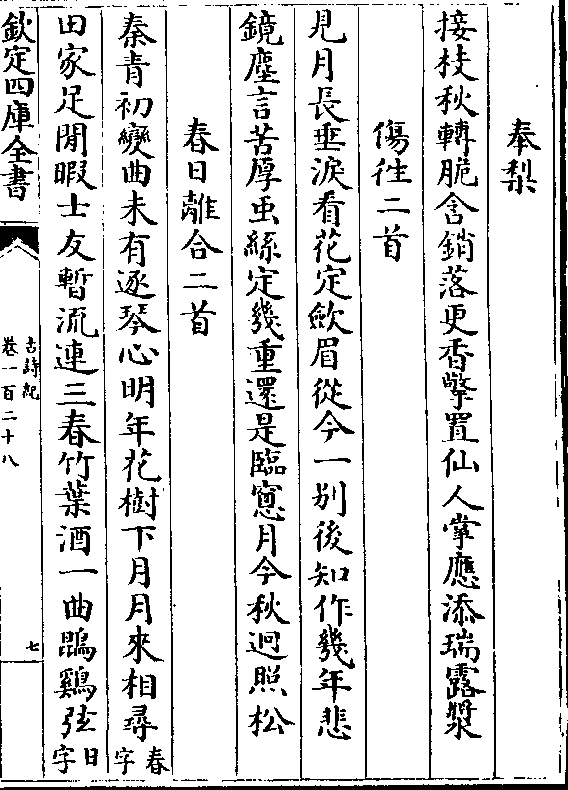 奉梨
接枝秋轉脆含銷落更香擎置仙人掌應添瑞露漿
傷徃二首
見月長垂淚看花定斂眉從今一别後知作幾年悲
鏡塵言苦厚䖝絲定幾重還是臨窻月今秋迥照松
春日離合二首
秦青初變曲未有逐琴心明年花樹下月月來相尋春字
田家足閒暇士友暫流連三春竹葉酒一曲鵾鷄弦日字
欽定四庫全書
古詩紀
卷一百二十八
七